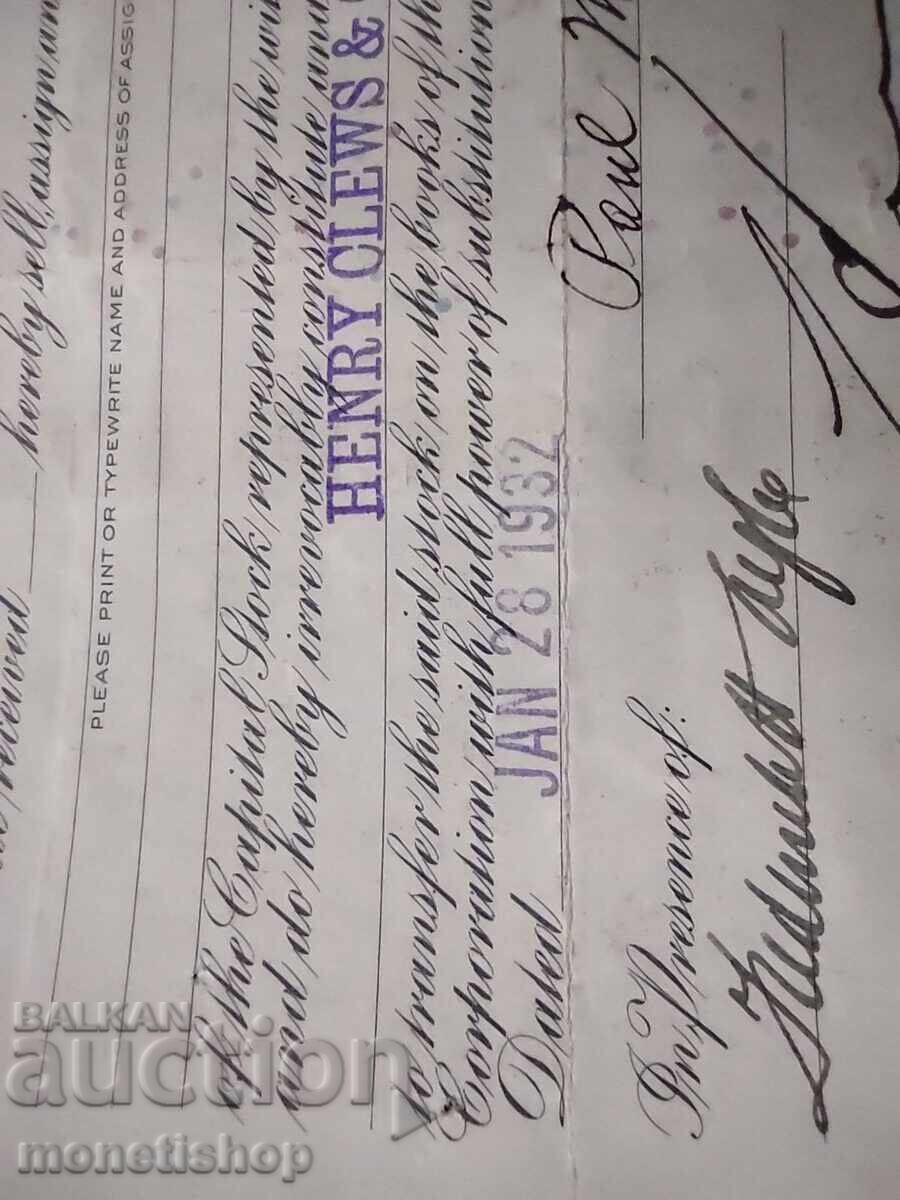 received hereby sell, assign un
PLEASE PRINT OR TYPEWRITE NAME AND ADDRESS OF ASSIG
of the Capital Stock represented by the wi
and do hereby irrevocably constitute and
HENRY CLEWS &
to transfer the said stock on the books of th
Corporation with full power of substitution
Dated JAN 28 1932
Paul M
In Presence of:
BALKAN
auction
monetishop